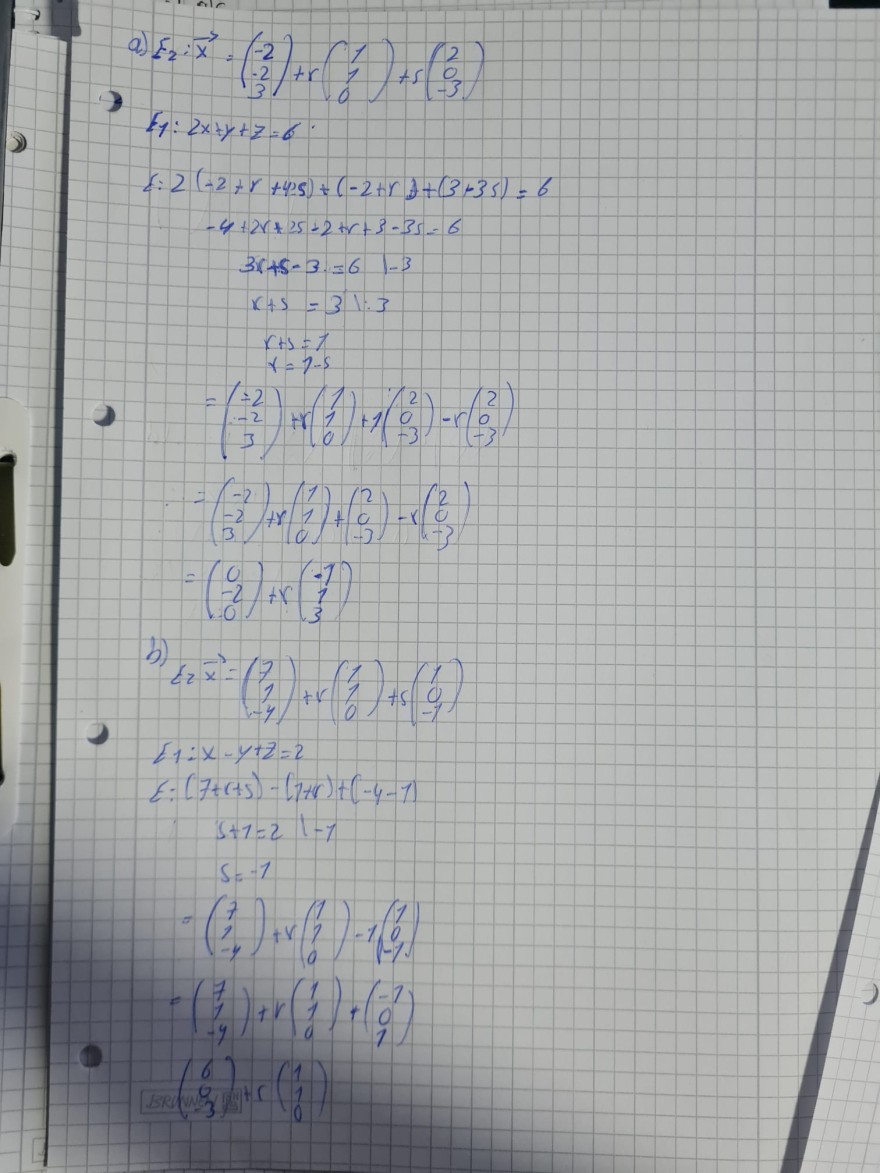 a) E₂: x⃗ = (-2 -2 3) + r (1 1 0) + s (2 0 -3)
E1: 2x+y+z=6
E: 2(-2+r+2s)+(-2+r)+(3-3s) = 6
-4+2r+2s-2+r+3-3s=6
3r+s-3=6 |-3
r+s = 3 |:3
r+s=1
r=1-s
= (-2 -2 3) +r (1 1 0) +1 (2 0 -3) -r (2 0 -3)
= (-2 -2 3) +r (1 1 0) + (2 0 -3) -r (2 0 -3)
= (0 -2 0) +r (-1 1 3)
b)
E₂ x⃗ = (7 1 -4) +r (1 1 0) +s (1 0 -1)
E1: x-y+z=2
E: (7+r+s)-(1+r)+(-4-1)
s+1=2 |-1
s=-1
= (7 1 -4) +r (1 1 0) -1 (1 0 -1)
= (7 1 -4) +r (1 1 0) + (-1 0 1)
(6 0 -3) +r (1 1 0)
BRUNNEN